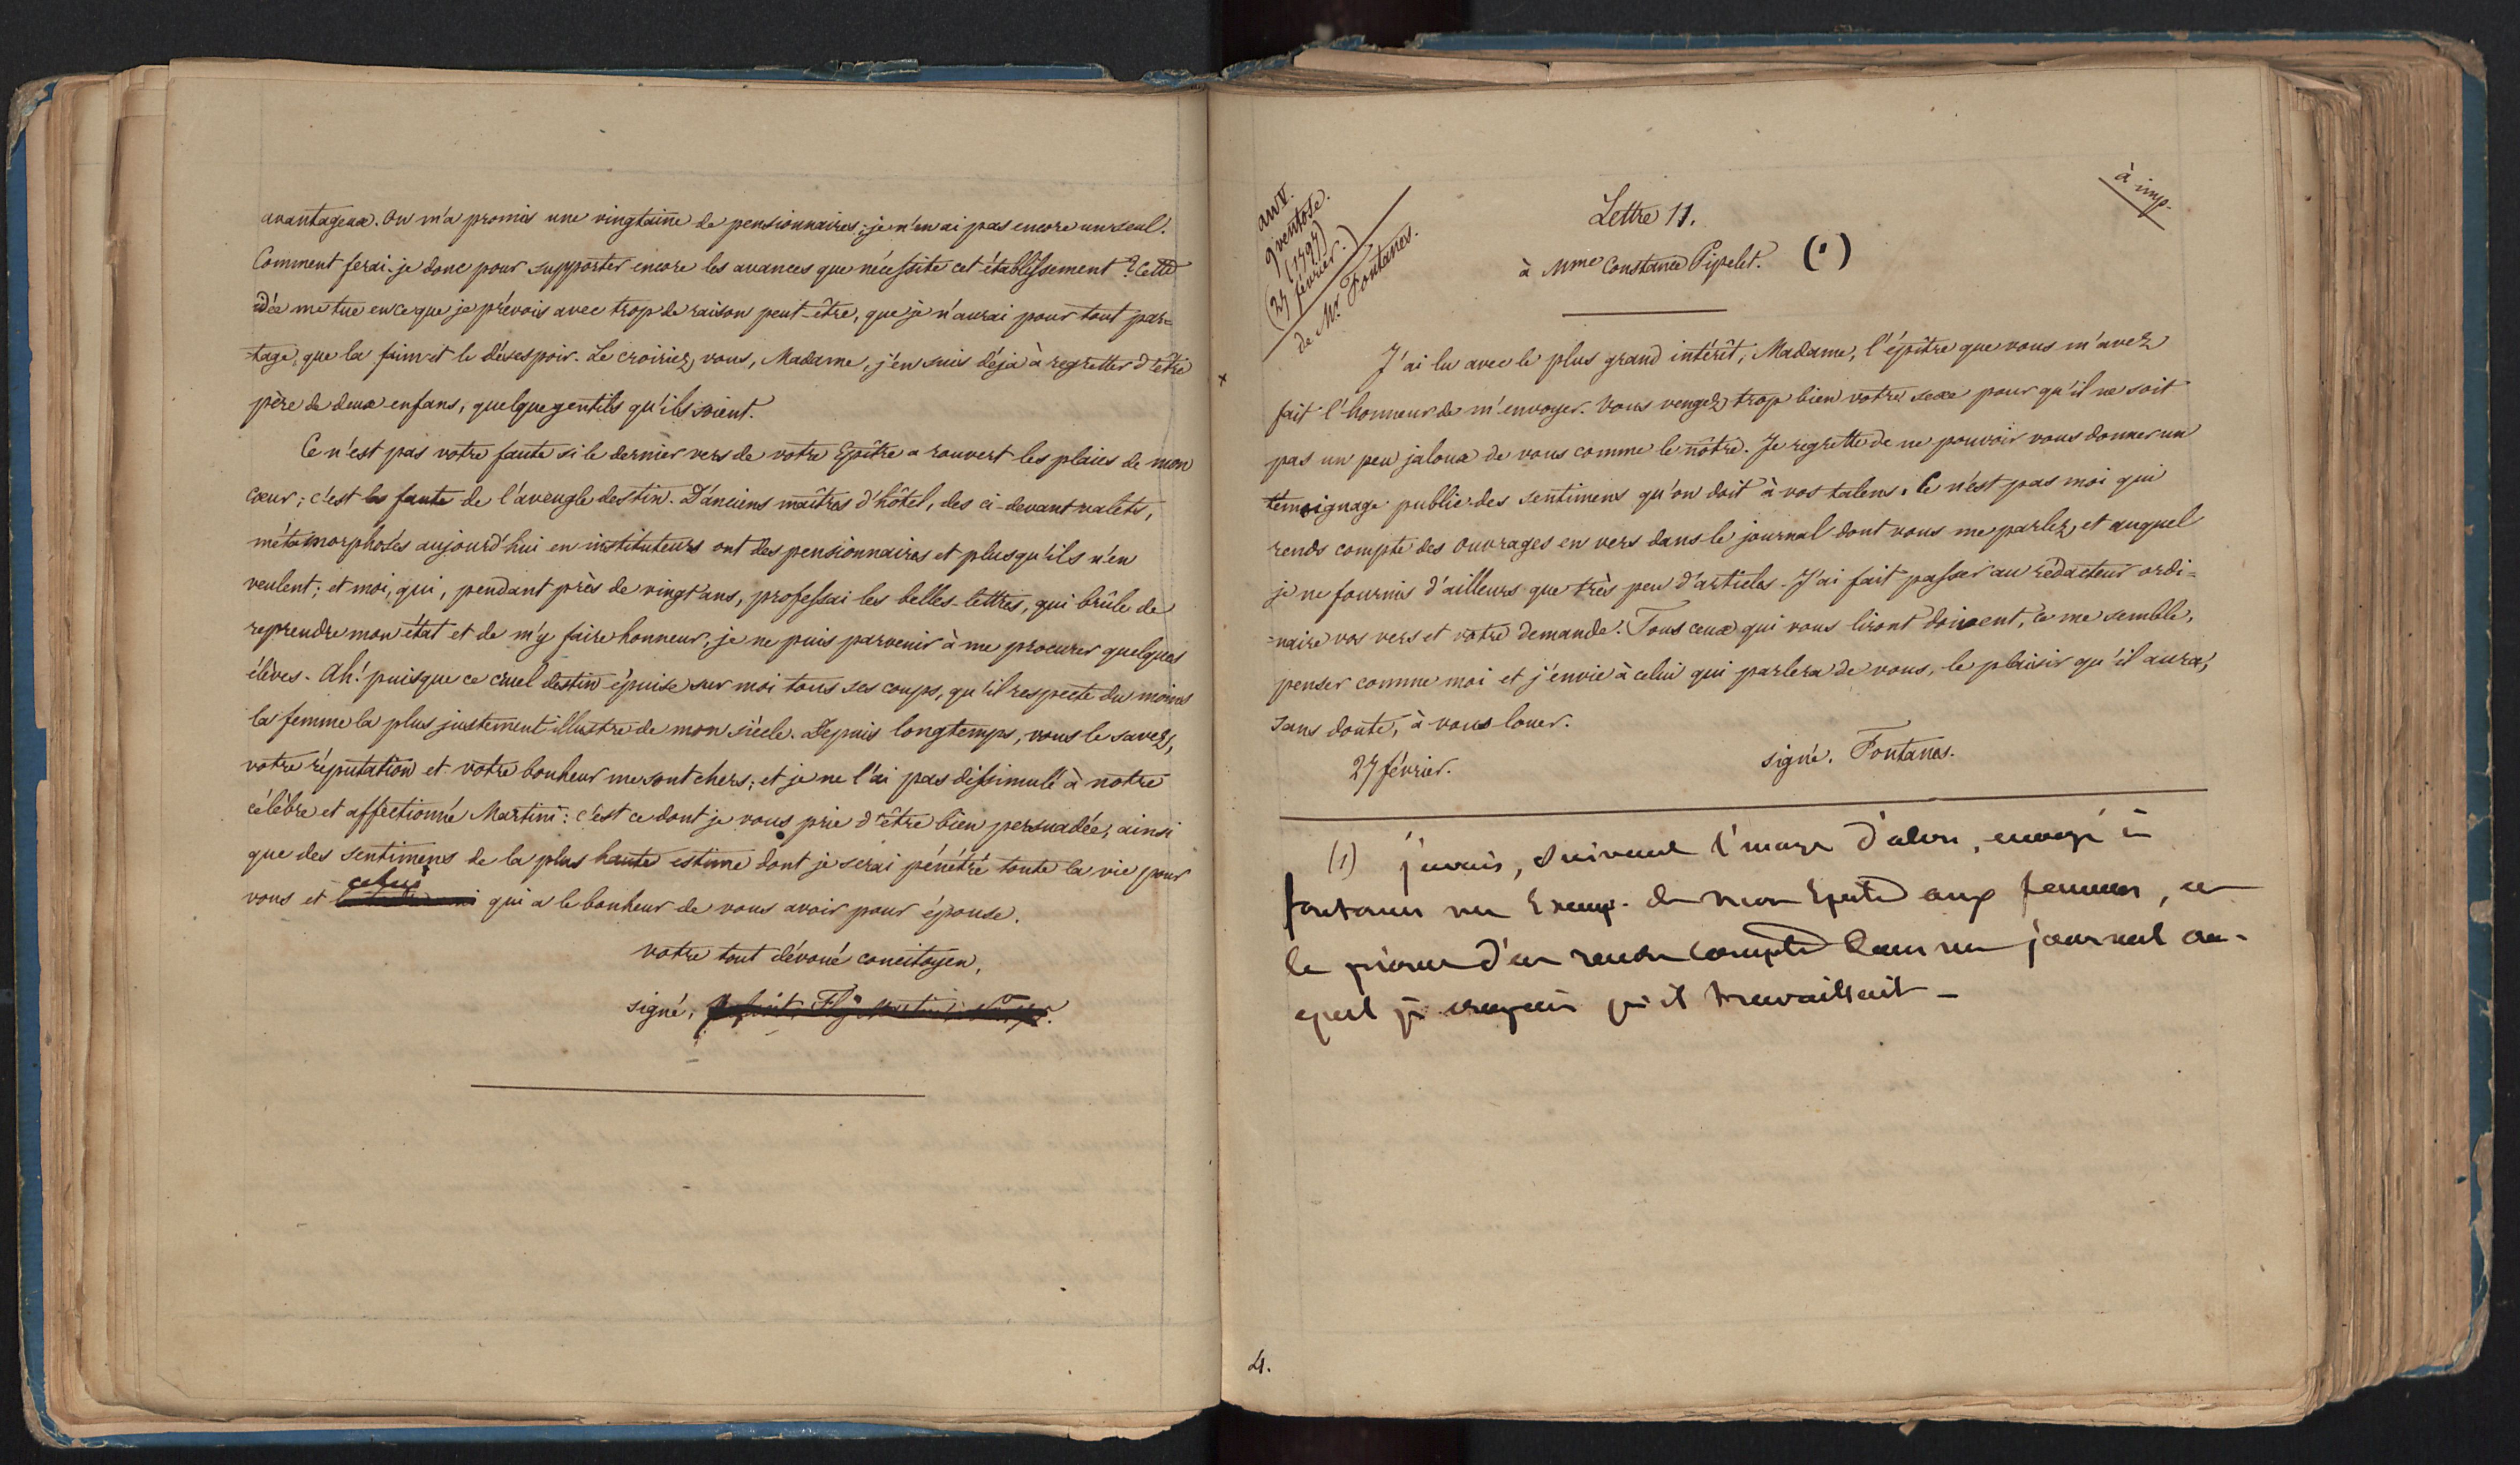 avantageux. On m'a promis une vingtaine de pensionnaires; je n'en ai pas encore un seul.
Comment ferai-je donc pour supporter encore les avances que nécessite cet établissement? Cette
idée me tue en ce que je prévois avec trop de raison peut-être, que je n'aurai pour tout par=
=tage, que la faim et le désespoir. Le croiriez, vous, Madame, j'en suis déjà à regretter d'être
père de deux enfans, quelque gentils qu'ils soient.
Ce n'est pas votre faute si le dernier vers de votre Epître a rouvert les plaies de mon
cœur; c'est la faute de l'aveugle destin. D'anciens maîtres d'hôtel, des ci-devant valets,
métamorphosés aujourd'hui en instituteurs ont des pensionnaires et plus qu'ils n'en
veulent; et moi, qui, pendant près de vingt ans, professai les belles-lettres, qui brûle de
reprendre mon état et de m'y faire honneur, je ne puis parvenir à me procurer quelques
élèves. Ah! puisque ce cruel destin épuise sur moi tous ses coups, qu'il respecte du moins
la femme la plus justement illustre de mon siècle. Depuis longtemps, vous le savez,
votre réputation et votre bonheur me sont chers; et je ne l'ai pas dissimulé à notre
célèbre et affectionné Martini: c'est ce dont je vous prie d'être bien persuadée, ainsi
que des sentimens de la plus haute estime dont je serai pénétré toute la vie pour
vous et celui qui a le bonheur de vous avoir pour épouse.
votre tout dévoué concitoyen,
signé,
an V.
9 ventose.
(1797)
(27 février.)
de Mr. Fontanes.
à imp.
Lettre 11.
à Mme Constance Pipelet. (1)
J'ai lu avec le plus grand intérêt, Madame, l'épître que vous m'avez
fait l'honneur de m'envoyer. Vous vengez trop bien votre sexe pour qu'il ne soit
pas un peu jaloux de vous comme le nôtre. Je regrette de ne pouvoir vous donner un
témoignage public des sentimens qu'on doit à vos talens. Ce n'est pas moi qui
rends compte des ouvrages en vers dans le journal dont vous me parlez, et auquel
je ne fournis d'ailleurs que très peu d'articles. J'ai fait passer au rédacteur ordi=
=naire vos vers et votre demande. Tous ceux qui vous liront doivent, ce me semble,
penser comme moi et j'envie à celui qui parlera de vous, le plaisir qu'il aura,
sans doute, à vous louer.
27 février.
signé. Fontanes.
(1) j'avais, suivant l'usage d'alors, envoyé à
fontanes un Exemp. de mon Epitre aux femmes, en
le priant d'en rendre compte dans un journal au-
quel je croyais qu'il travaillait -
4.